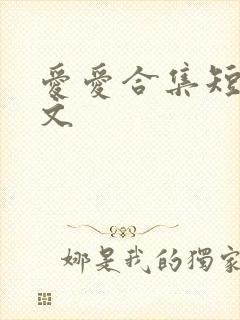 愛愛合集短
文
娜是我的獨家